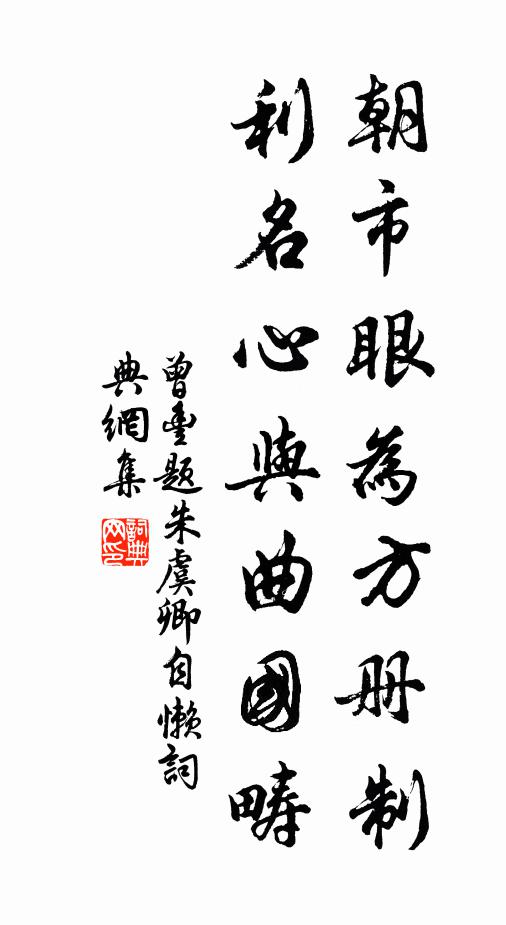 朝市眼為方册制
利名心與曲國疇
曾豊題朱虞卿自懶詞
典網集
詞典網印